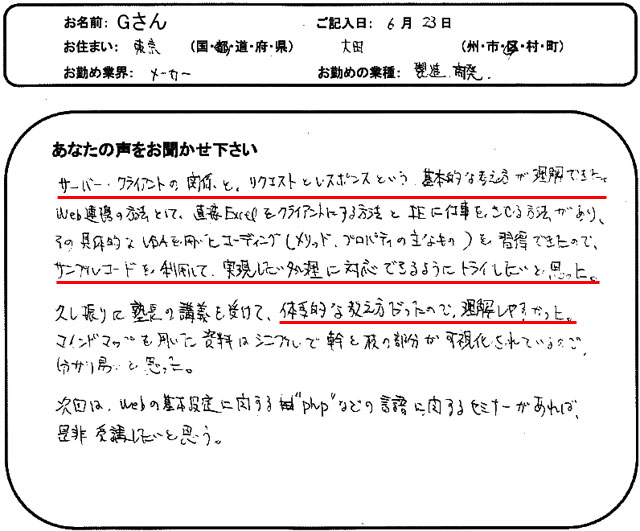 お名前: Gさん ご記入日: 6月 23日
お住まい: 東京 (国・都・道・府・県) 大田 (州・市・区・村・町)
お勤め業界: メーカー お勤めの業種: 製造、開発.
あなたの声をお聞かせ下さい
サーバー・クライアントの関係と、リクエストとレスポンスという基本的な考え方が理解できた。
Web連携の方法として、直接Excelをクライアントにする方法とIEに仕事をさせる方法があり、
その具体的なVBAを用いたコーディング(メソッド、プロパティの主なもの)を習得できたので、
サンプルコードを利用して、実現したい処理に対応できるようにトライしたいと思った。
久し振りに塾長の講義を受けて、体系的な教え方だったので、理解しやすかった。
マインドマップを用いた資料はシンプルで幹と枝の部分が可視化されているので、
分かり易いと思った。
次回は、Webの基本設定に関する"php"などの言語に関するセミナーがあれば、
是非受講したいと思う。